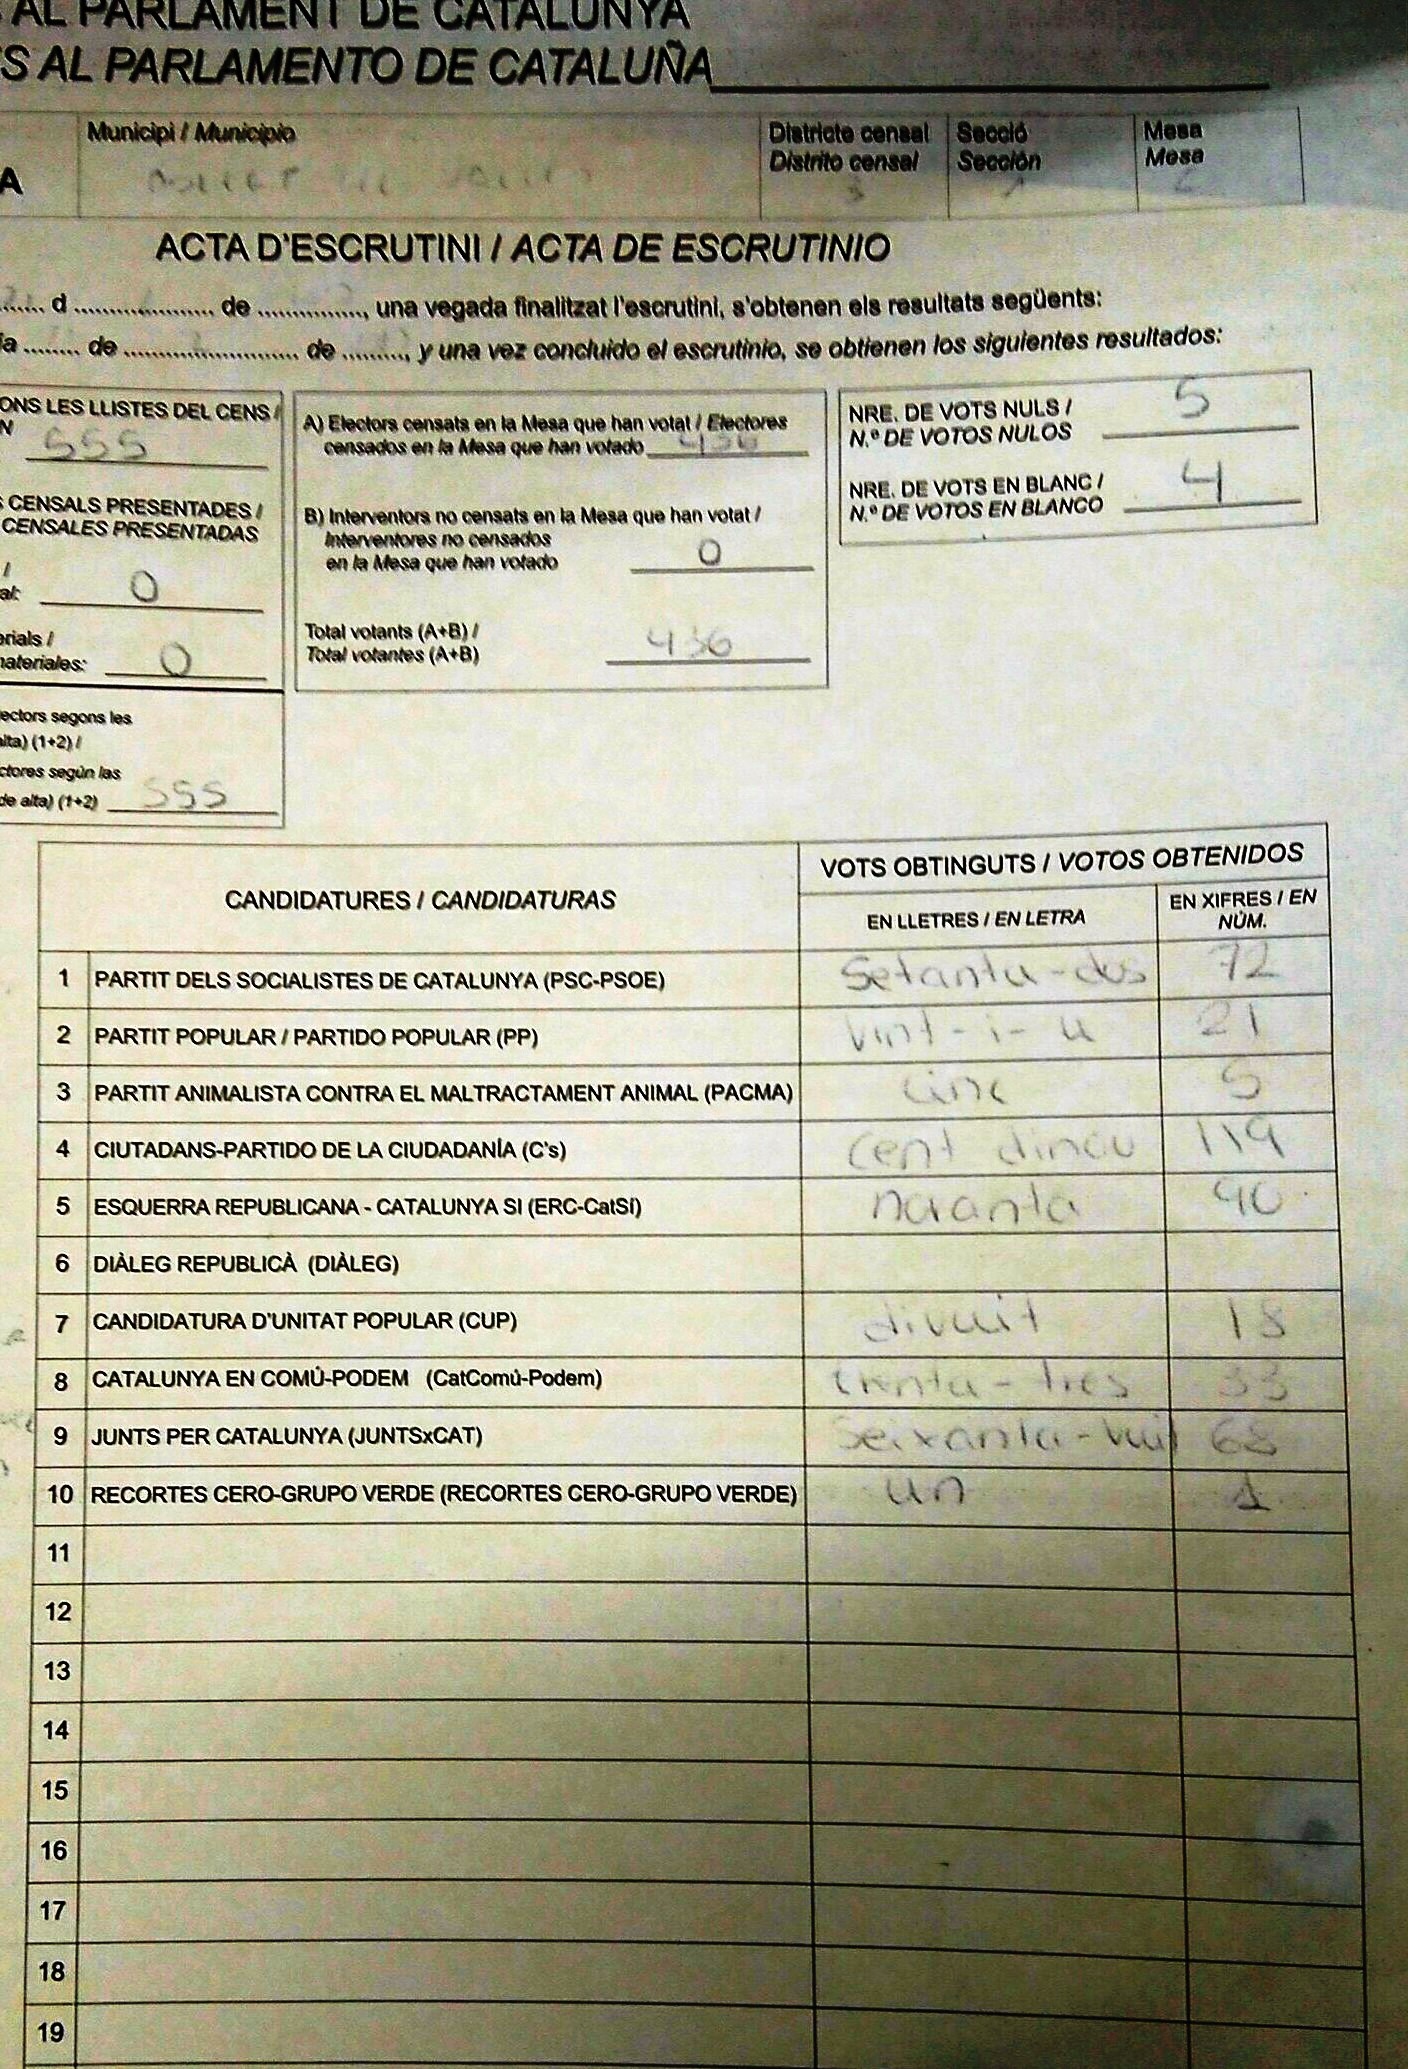 AL PARLAMENT DE CATALUNYA
S AL PARLAMENTO DE CATALUÑA
Municipi / Municipio
Districte censal
Distrito censal
Secció
Sección
Mesa
Mesa
A
ACTA D'ESCRUTINI / ACTA DE ESCRUTINIO
d .................... de .............., una vegada finalitzat l'escrutini, s'obtenen els resultats següents:
ía ........ de ......................... de ........., y una vez concluido el escrutinio, se obtienen los siguientes resultados:
ONS LES LLISTES DEL CENS /
N 555
S CENSALS PRESENTADES /
CENSALES PRESENTADAS
/
al: 0
erials /
materiales: 0
lectors segons les
alta) (1+2) /
ctores según las
de alta) (1+2) 555
A) Electors censats en la Mesa que han votat / Electores
censados en la Mesa que han votado 436
B) Interventors no censats en la Mesa que han votat /
Interventores no censados
en la Mesa que han votado 0
Total votants (A+B) /
Total votantes (A+B) 436
NRE. DE VOTS NULS /
N.º DE VOTOS NULOS 5
NRE. DE VOTS EN BLANC /
N.º DE VOTOS EN BLANCO 4
CANDIDATURES / CANDIDATURAS
VOTS OBTINGUTS / VOTOS OBTENIDOS
EN LLETRES / EN LETRA
EN XIFRES / EN
NÚM.
1 PARTIT DELS SOCIALISTES DE CATALUNYA (PSC-PSOE) Setanta-dos 72
2 PARTIT POPULAR / PARTIDO POPULAR (PP) Vint-i-u 21
3 PARTIT ANIMALISTA CONTRA EL MALTRACTAMENT ANIMAL (PACMA) cinc 5
4 CIUTADANS-PARTIDO DE LA CIUDADANÍA (C's) Cent dinou 119
5 ESQUERRA REPUBLICANA - CATALUNYA SI (ERC-CatSí) noranta 90
6 DIÀLEG REPUBLICÀ (DIÀLEG)
7 CANDIDATURA D'UNITAT POPULAR (CUP) divuit 18
8 CATALUNYA EN COMÚ-PODEM (CatComú-Podem) trenta-tres 33
9 JUNTS PER CATALUNYA (JUNTSxCAT) Seixanta-vuit 68
10 RECORTES CERO-GRUPO VERDE (RECORTES CERO-GRUPO VERDE) un 1
11
12
13
14
15
16
17
18
19